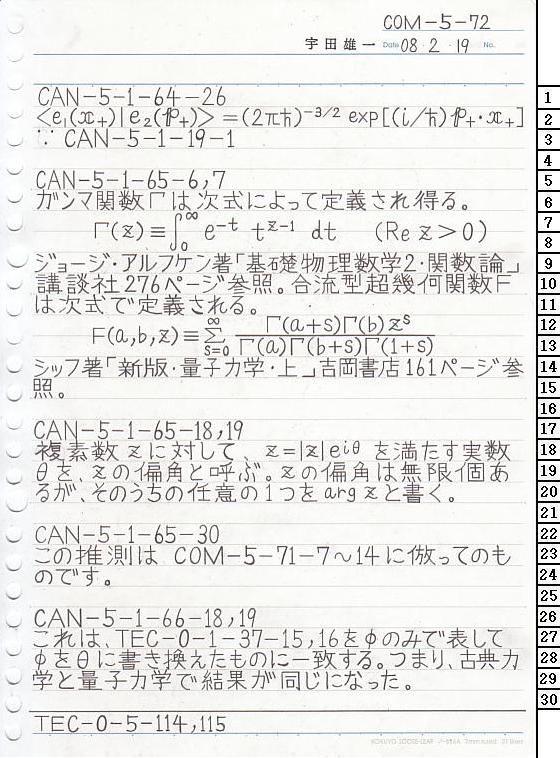 COM-5-72
宇田雄一 Date 08・2・19 No.
CAN-5-1-64-26
<e₁(x₊)|e₂(p₊)> =(2πħ)^{-3/2} exp[(i/ħ)p₊・x₊]
∵ CAN-5-1-19-1
CAN-5-1-65-6,7
ガンマ関数Γは次式によって定義され得る。
Γ(z)≡∫₀^∞ e^{-t} t^{z-1} dt (Re z>0)
ジョージ・アルフケン著「基礎物理数学2・関数論」
講談社276ページ参照。合流型超幾何関数F
は次式で定義される。
F(a,b,z)≡Σ_{s=0}^∞ Γ(a+s)Γ(b)z^s / Γ(a)Γ(b+s)Γ(1+s)
シッフ著「新版・量子力学・上」吉岡書店161ページ参
照。
CAN-5-1-65-18,19
複素数zに対して、z=|z|e^{iθ}を満たす実数
θを、zの偏角と呼ぶ。zの偏角は無限個あ
るが、そのうちの任意の1つをarg zと書く。
CAN-5-1-65-30
この推測は COM-5-71-7～14に倣ってのも
のです。
CAN-5-1-66-18,19
これは、TEC-0-1-37-15,16をφのみで表して
φをθに書き換えたものに一致する。つまり、古典力
学と量子力学で結果が同じになった。
TEC-0-5-114,115
1
2
3
4
5
6
7
8
9
10
11
12
13
14
15
16
17
18
19
20
21
22
23
24
25
26
27
28
29
30